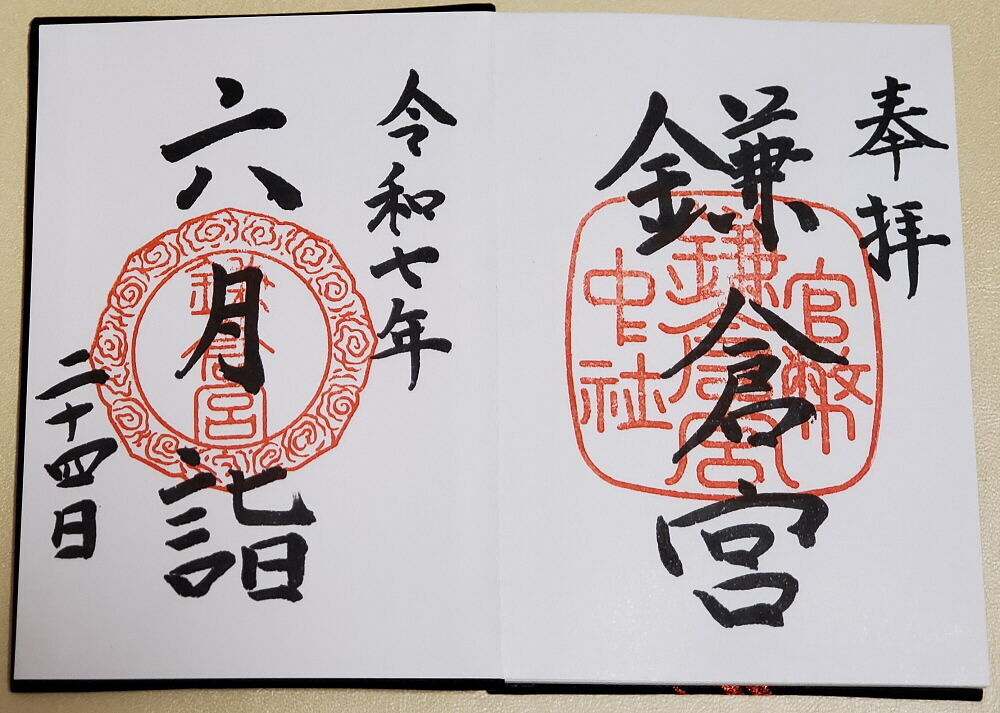 奉拝
鎌倉宮
官幣
鎌倉宮
中社
令和七年
六月詣
鎌倉宮
二十四日